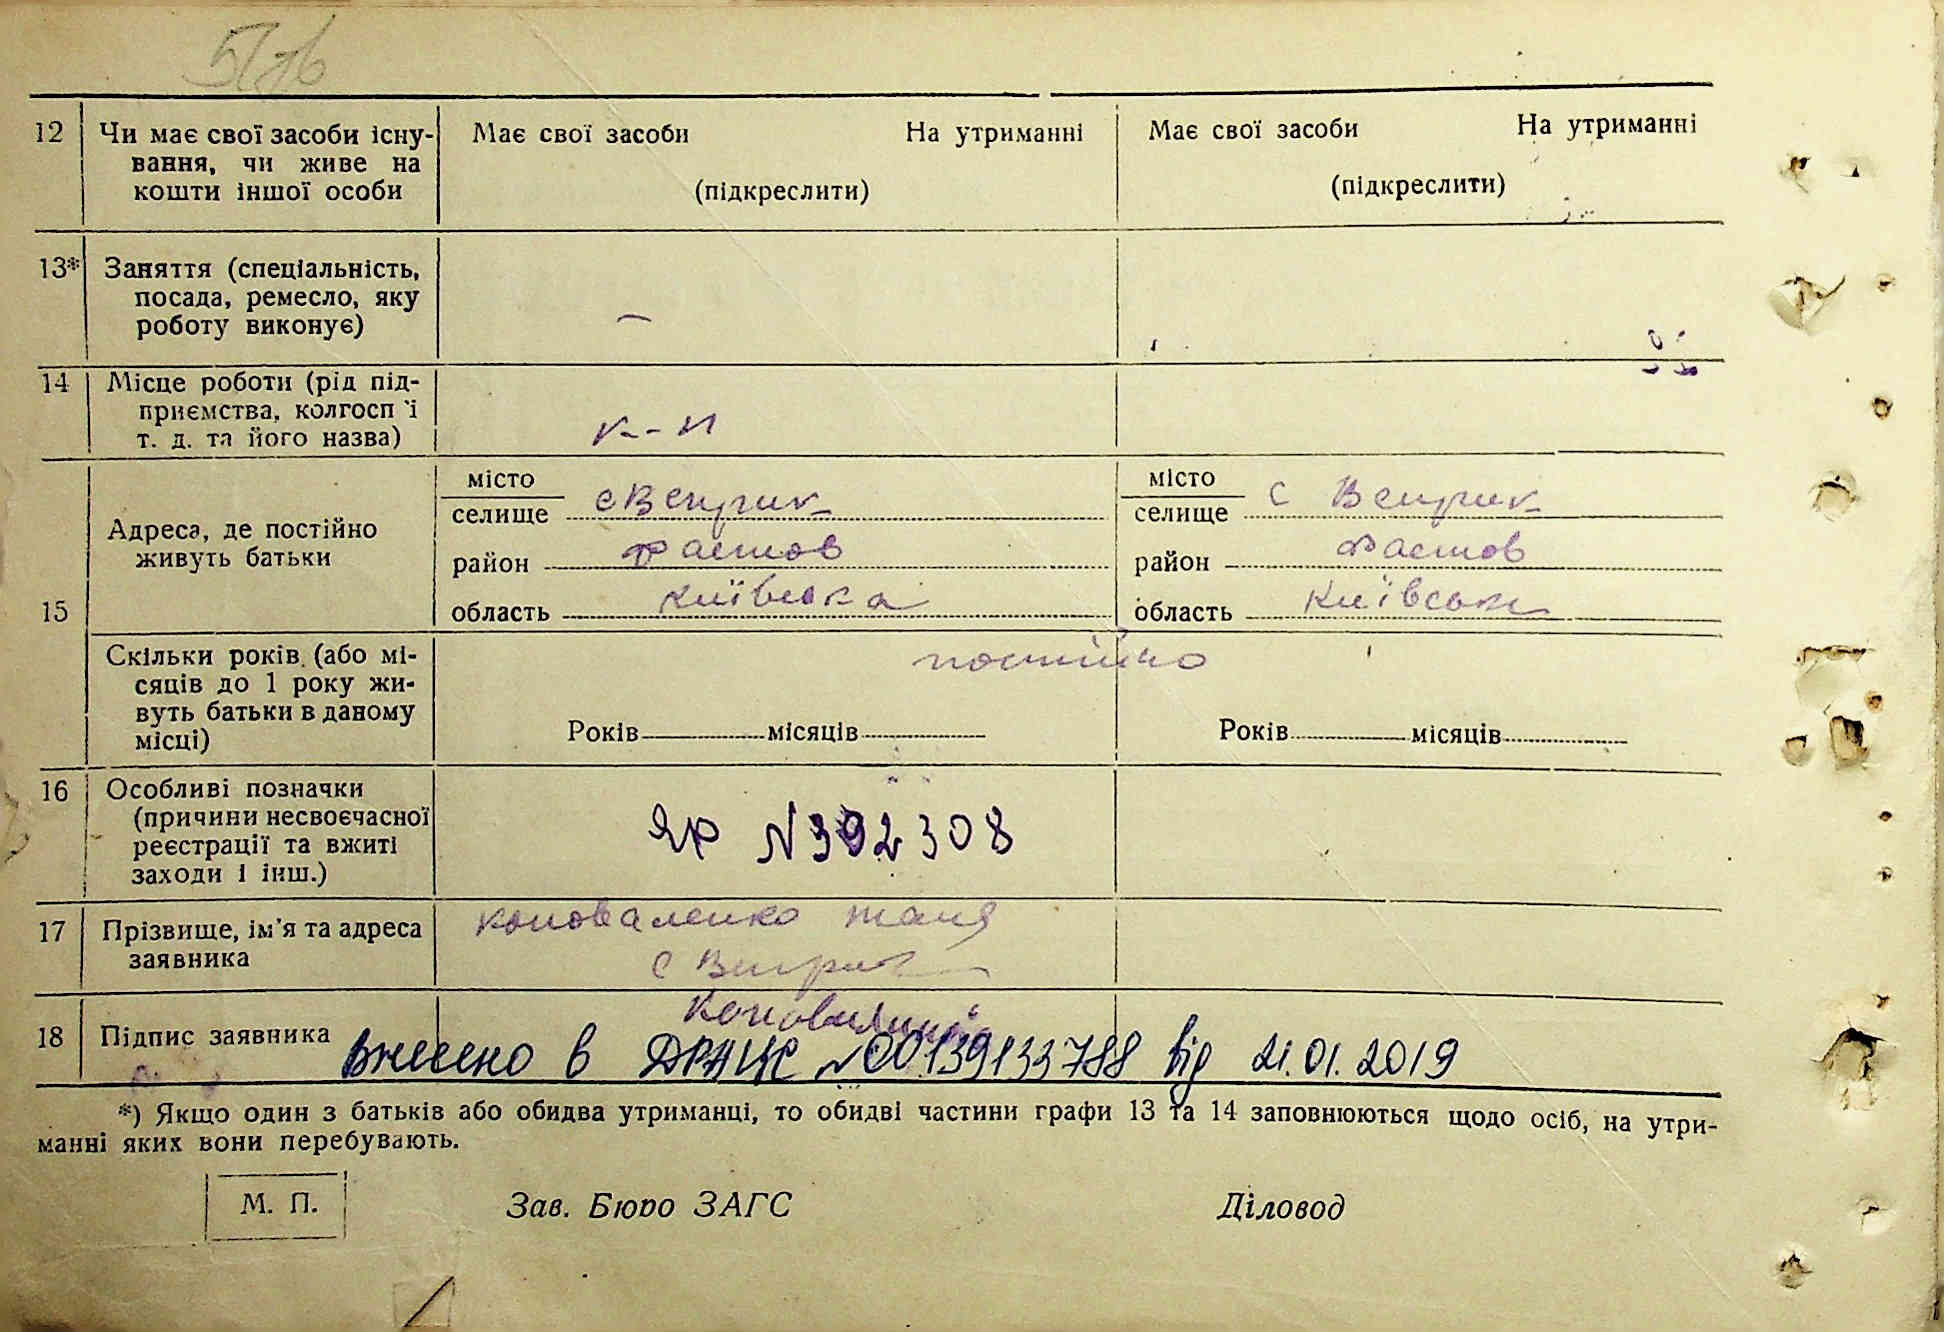 12 Чи має свої засоби існу- Має свої засоби На утриманні Має свої засоби На утриманні
вання, чи живе на
кошти іншої особи (підкреслити) (підкреслити)
13* Заняття (спеціальність,
посада, ремесло, яку
роботу виконує) —
14 Місце роботи (рід під-
приємства, колгосп і
т. д. та його назва) к-п
місто місто
селище с Веприк селище с Веприк
Адреса, де постійно
живуть батьки
район Фастов район Фастов
15 область Київська область Київськ
Скільки років (або мі- постійно
сяців до 1 року жи-
вуть батьки в даному
місці) Років місяців Років місяців
16 Особливі позначки
(причини несвоєчасної
реєстрації та вжиті ЯР №392308
заходи і інш.)
17 Прізвище, ім'я та адреса Коноваленко Таня
заявника с Веприк
18 Підпис заявника
Внесено в ДРАЦС №00139133788 від 21.01.2019
*) Якщо один з батьків або обидва утриманці, то обидві частини графи 13 та 14 заповнюються щодо осіб, на утри-
манні яких вони перебувають.
М. П. Зав. Бюро ЗАГС Діловод